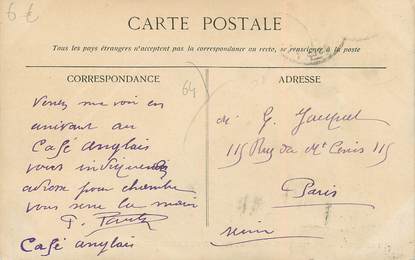 6 €
CARTE POSTALE
Tous les pays étrangers n'acceptent pas la correspondance au recto, se renseigner à la poste
CORRESPONDANCE
64
Venez me voir en
arrivant au
Café Anglais
vous indiquerai
adresse pour chambre
vous serre la main
P.
Café Anglais
ADRESSE
G. Jacquet
115 Rue du Mt Cenis 115
Paris